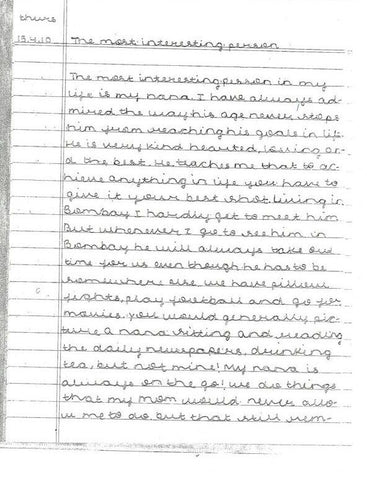 thurs
15.4.10 The most interesting person
The most interesting person in my
life is my nana. I have always ad-
mired the way his age never stops
him from reaching his goals in life.
He is very kind hearted, loving an-
d the best. He teaches me that to ac-
hieve anything in life you have to
give it your best shot. Living in
Bombay I hardly get to meet him.
But whenever I go to see him in
Bombay he will always take out
time for us even though he has to be
somewhere else. We have pillow
fights, play football and go for
movies. You would generally pic-
ture a nana sitting and reading
the daily newspapers, drinking
tea, but not mine! My nana is
always on the go! We do things
that my mom would never allo-
w me to do. but that still rem-